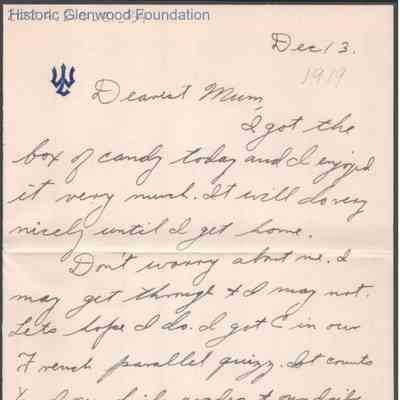 Historic Glenwood Foundation
Dec 13.
1919
Dearest Mum,
I got the
box of candy today and I enjoyed
it very much. It will do very
nicely until I get home.
Don't worry about me. I
may get through & I may not.
Lets hope I do. I got C in our
French parallel quizz. It counts